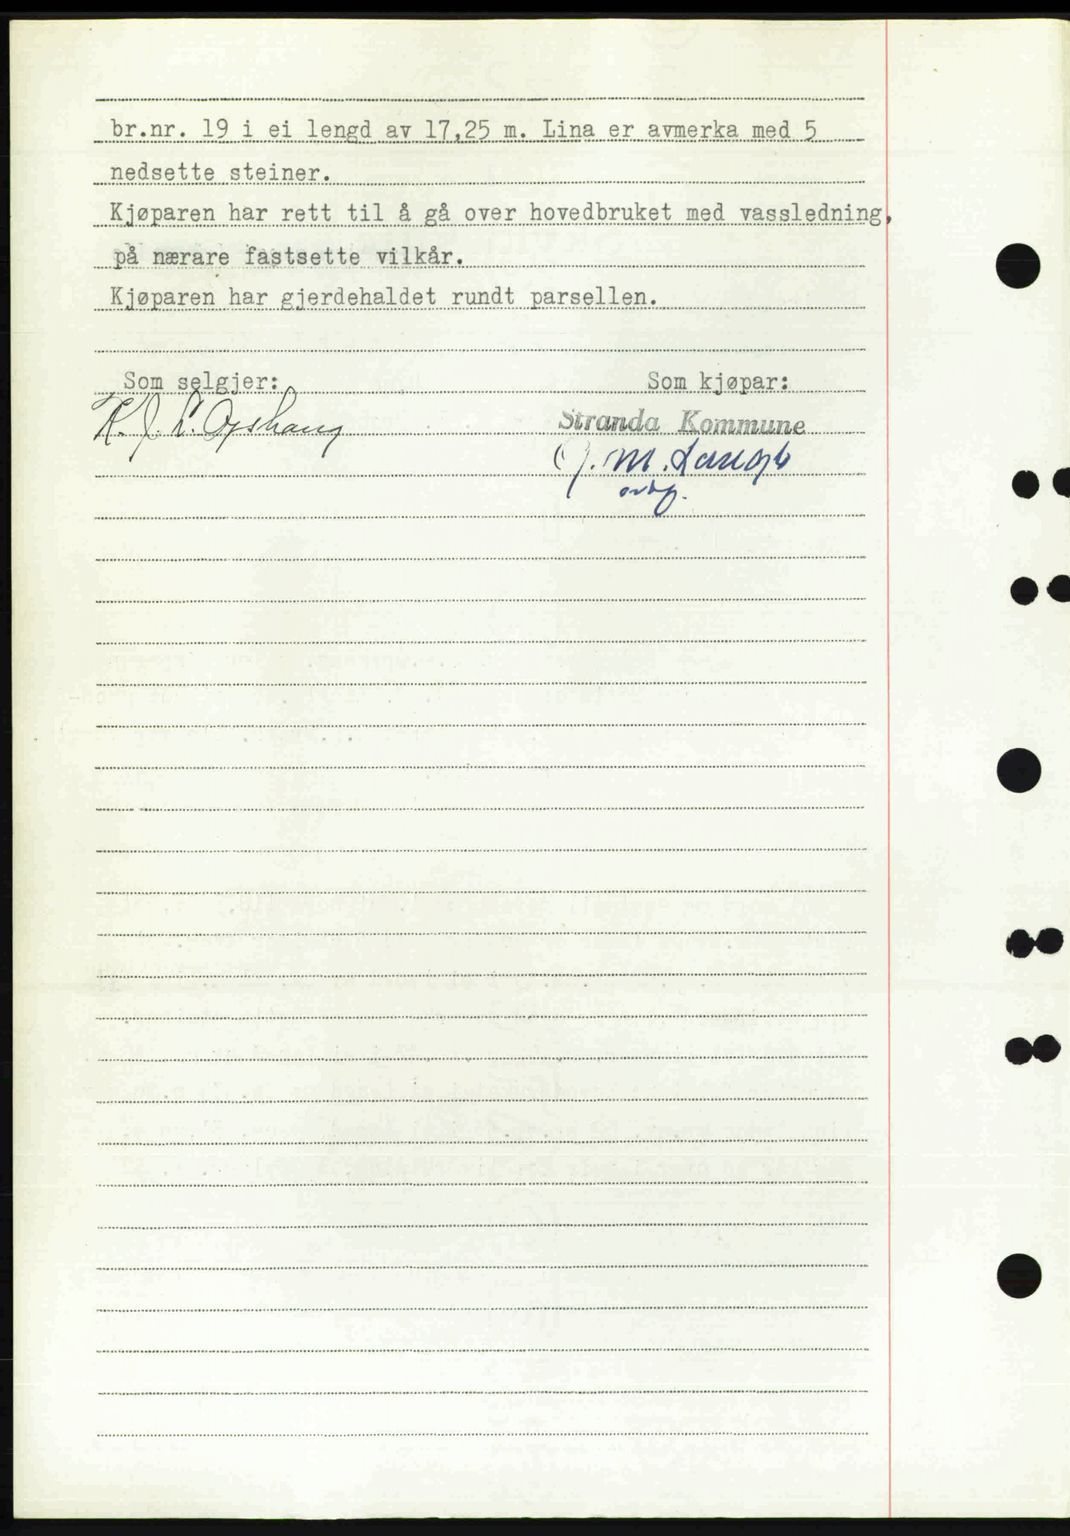 br.nr. 19 i ei lengd av 17,25 m. Lina er avmerka med 5
nedsette steiner.
Kjøparen har rett til å gå over hovedbruket med vassledning,
på nærare fastsette vilkår.
Kjøparen har gjerdehaldet rundt parsellen.
Som selgjer: Som kjøpar:
K. J. L. Opshaug Stranda Kommune
J. M. Langlo
ordf.